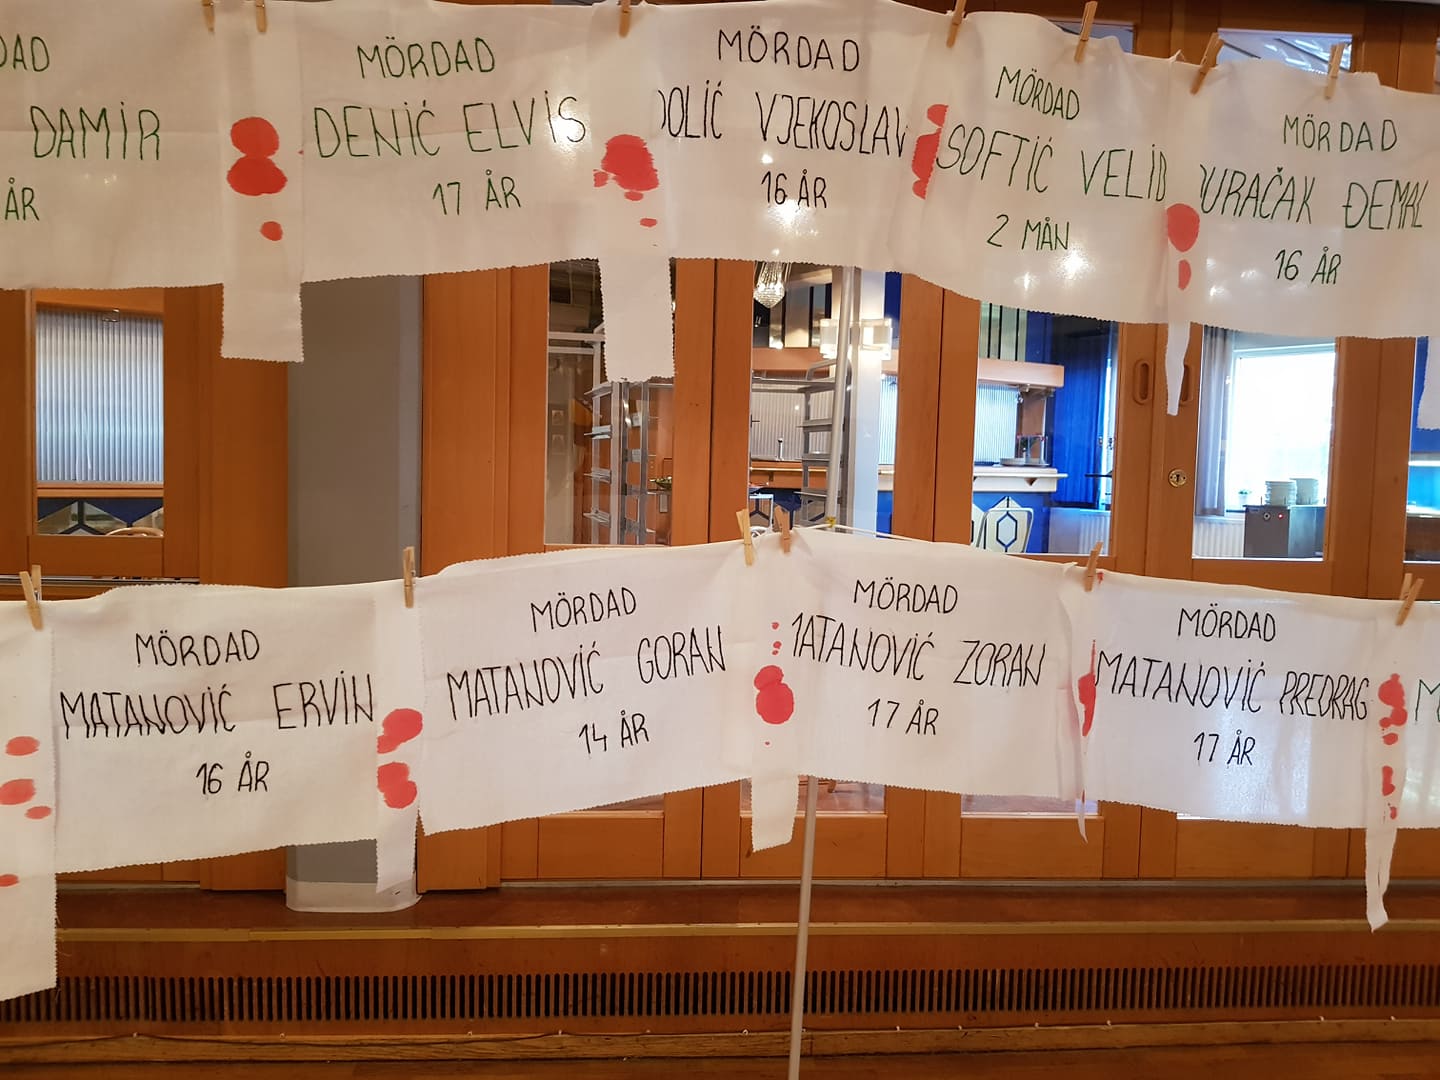 DAMIR
ÅR
MÖRDAD
DENIĆ ELVIS
17 ÅR
MÖRDAD
VJEKOSLAV
16 ÅR
MÖRDAD
SOFTIĆ VELID
2 MÅN
MÖRDAD
ĐEMAL
16 ÅR
MÖRDAD
MATANOVIĆ ERVIN
16 ÅR
MÖRDAD
MATANOVIĆ GORAN
14 ÅR
MÖRDAD
MATANOVIĆ ZORAN
17 ÅR
MÖRDAD
MATANOVIĆ PREDRAG
17 ÅR